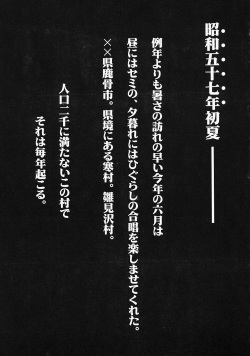 昭和五十七年初夏――――
例年よりも暑さの訪れの早い今年の六月は
昼にはセミの、夕暮れにはひぐらしの合唱を楽しませてくれた。
××県鹿骨市。県境にある寒村。雛見沢村。
人口二千に満たないこの村で
それは毎年起こる。